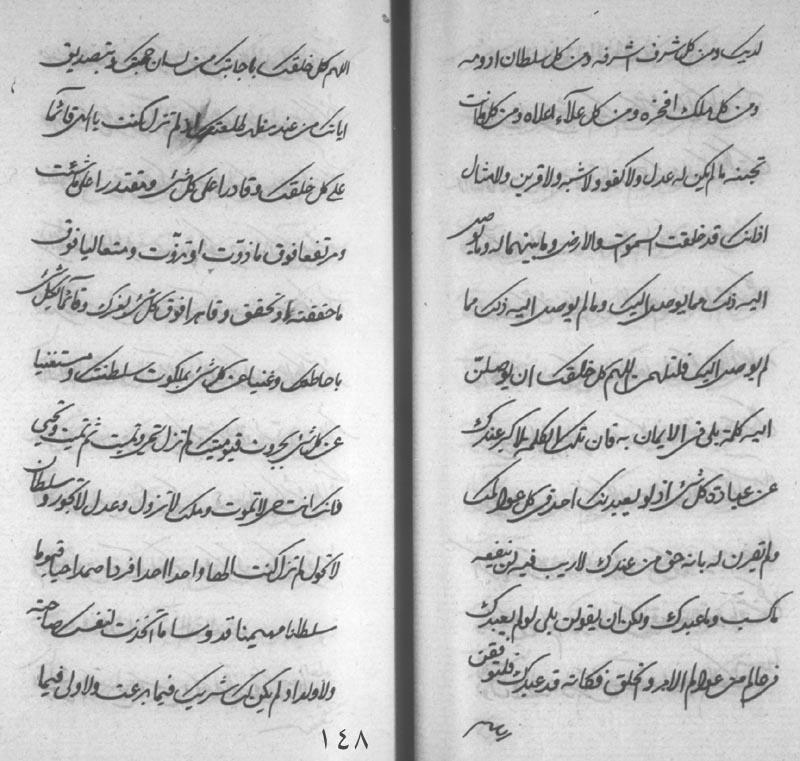 لدیک ومن کل شرف اشرفه ومن کل سلطان ادومه
ومن کل ملک افخره ومن کل علاء اعلاه ومن کل
تحبنه ما لم یکن له عدل ولا کفو ولا شبه ولا قرین ولا مثال
اذ انک قد خلقت السموات والارض وما بینهما له وما یوصل
الیه ذلک مما یوصل الیک وما لم یوصل الیه ذلک مما
لم یوصل الیک فلتلهمن اللهم کل خلقک ان یوصلن
الیه کلمة بلی فی الایمان به فان تلک الکلمة لاکبر عندک
عن عبادة کل شیء اذ لو یعبدنک احد فی کل عوالمک
ولم یقرن له بانه حق من عندک لا ریب فیه لن ینفعه
ما کسب وما عبدک ولکن ان یقولن بلی لو لم یعبدک
فی عالم من عوالم الامر والخلق فکانه قد عبدک فلتوفقن
اللهم کل خلقک باجابتک من لسان حجتک وبتصدیق
ایاتک من عند مظهر طلعتک اذ لم تزل کنت یا الهی قائما
علی کل خلقک وقادرا علی کل شیء ومقتدرا علی ما شئت
ومرتفعا فوق ما ذوت او تذوت ومتعالیا فوق
ما حققته او تحقق وقاهرا فوق کل شیء وقائما کل شیء
باحاطتک وغنیا عن کل شیء بملکوت سلطنتک ومستغنیا
عن کل شیء بجبروت قیومیتک لم تزل تحیی وتمیت ثم تمیت وتحیی
فانک انت حی لا تموت وملک لا تزول وعدل لا تجور وسلطان
لا تحول لم تزل کنت الها واحدا احدا فردا صمدا حیا قیوما
سلطانا مهیمنا قدوسا ما اتخذت لنفسک صاحبة
ولا ولدا ولم یکن لک شریک فیما برعت ولا ولی فیما
١٤٨